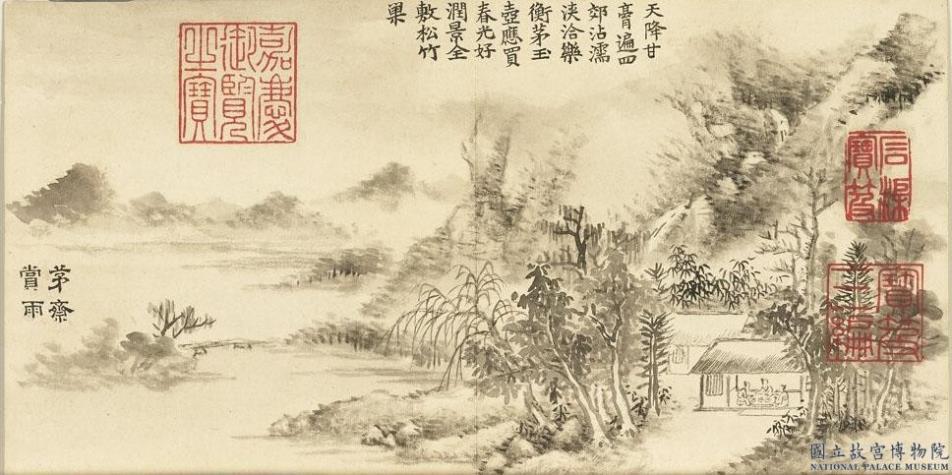 石渠
寶笈
寶笈
三編
天降甘
膏遍四
郊沾濡
浹洽樂
衡茅玉
壺應買
春光好
潤景全
敷松竹
果
嘉慶
御覽
之寶
茅齋
賞雨
國立故宮博物院
NATIONAL PALACE MUSEUM